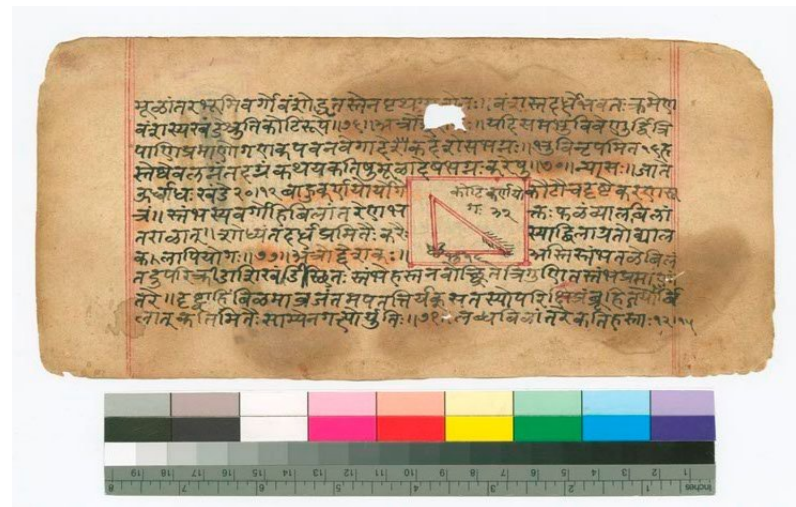 मूळांतरभूमिवर्गोवंशोद्धृतस्तेनपृथ नः॥वंशस्तदर्धेभवतःक्रमेण
वंशस्यखंडेश्रुतिकोटिरूपे॥७६॥अत्रो ॥यदिसमभुविवेणुर्द्वित्रि
पाणिप्रमाणोगणकपवनवेगादेकदेशेसभग्नः॥भुविनृपमित१६ह
स्तेष्वंगलग्नंतदग्रंकथयकतिषुमूळादेषभग्नःकरेषु॥७०॥न्यासः॥जाते
ऊर्धाधःखंडे२०।१२बाहुकर्णयोर्योगे कोटिकर्णयो कोटौचदृष्टेकरणसू
गः ३२
त्रं॥स्तंभस्यवर्गोहिबिलांतरेणभ क्तःफळंव्यालबिलां
तराळात्॥शोध्यंतदर्धप्रमितैःकरैः स्याद्बिलाग्रतोव्याल
कलापियोगः॥७७॥अत्रोद्देशकः॥ १६ अस्तिस्तंभतळेबिलं
तदुपरिक्रीडाशिखंडीस्थितःस्तंभेहस्तनवोच्छ्रितेत्रिगुणितस्तंभप्रमाणां
तरे॥दृष्ट्वाहिंबिळमाव्रजंतमपतत्तिर्यक्सतस्योपरिक्षिप्रंब्रूहितयोर्बि
लात्कतिमितैःसाम्येनगत्योर्युतिः॥७१॥लब्धबिळांतरेकतिहस्ताः१२।१५